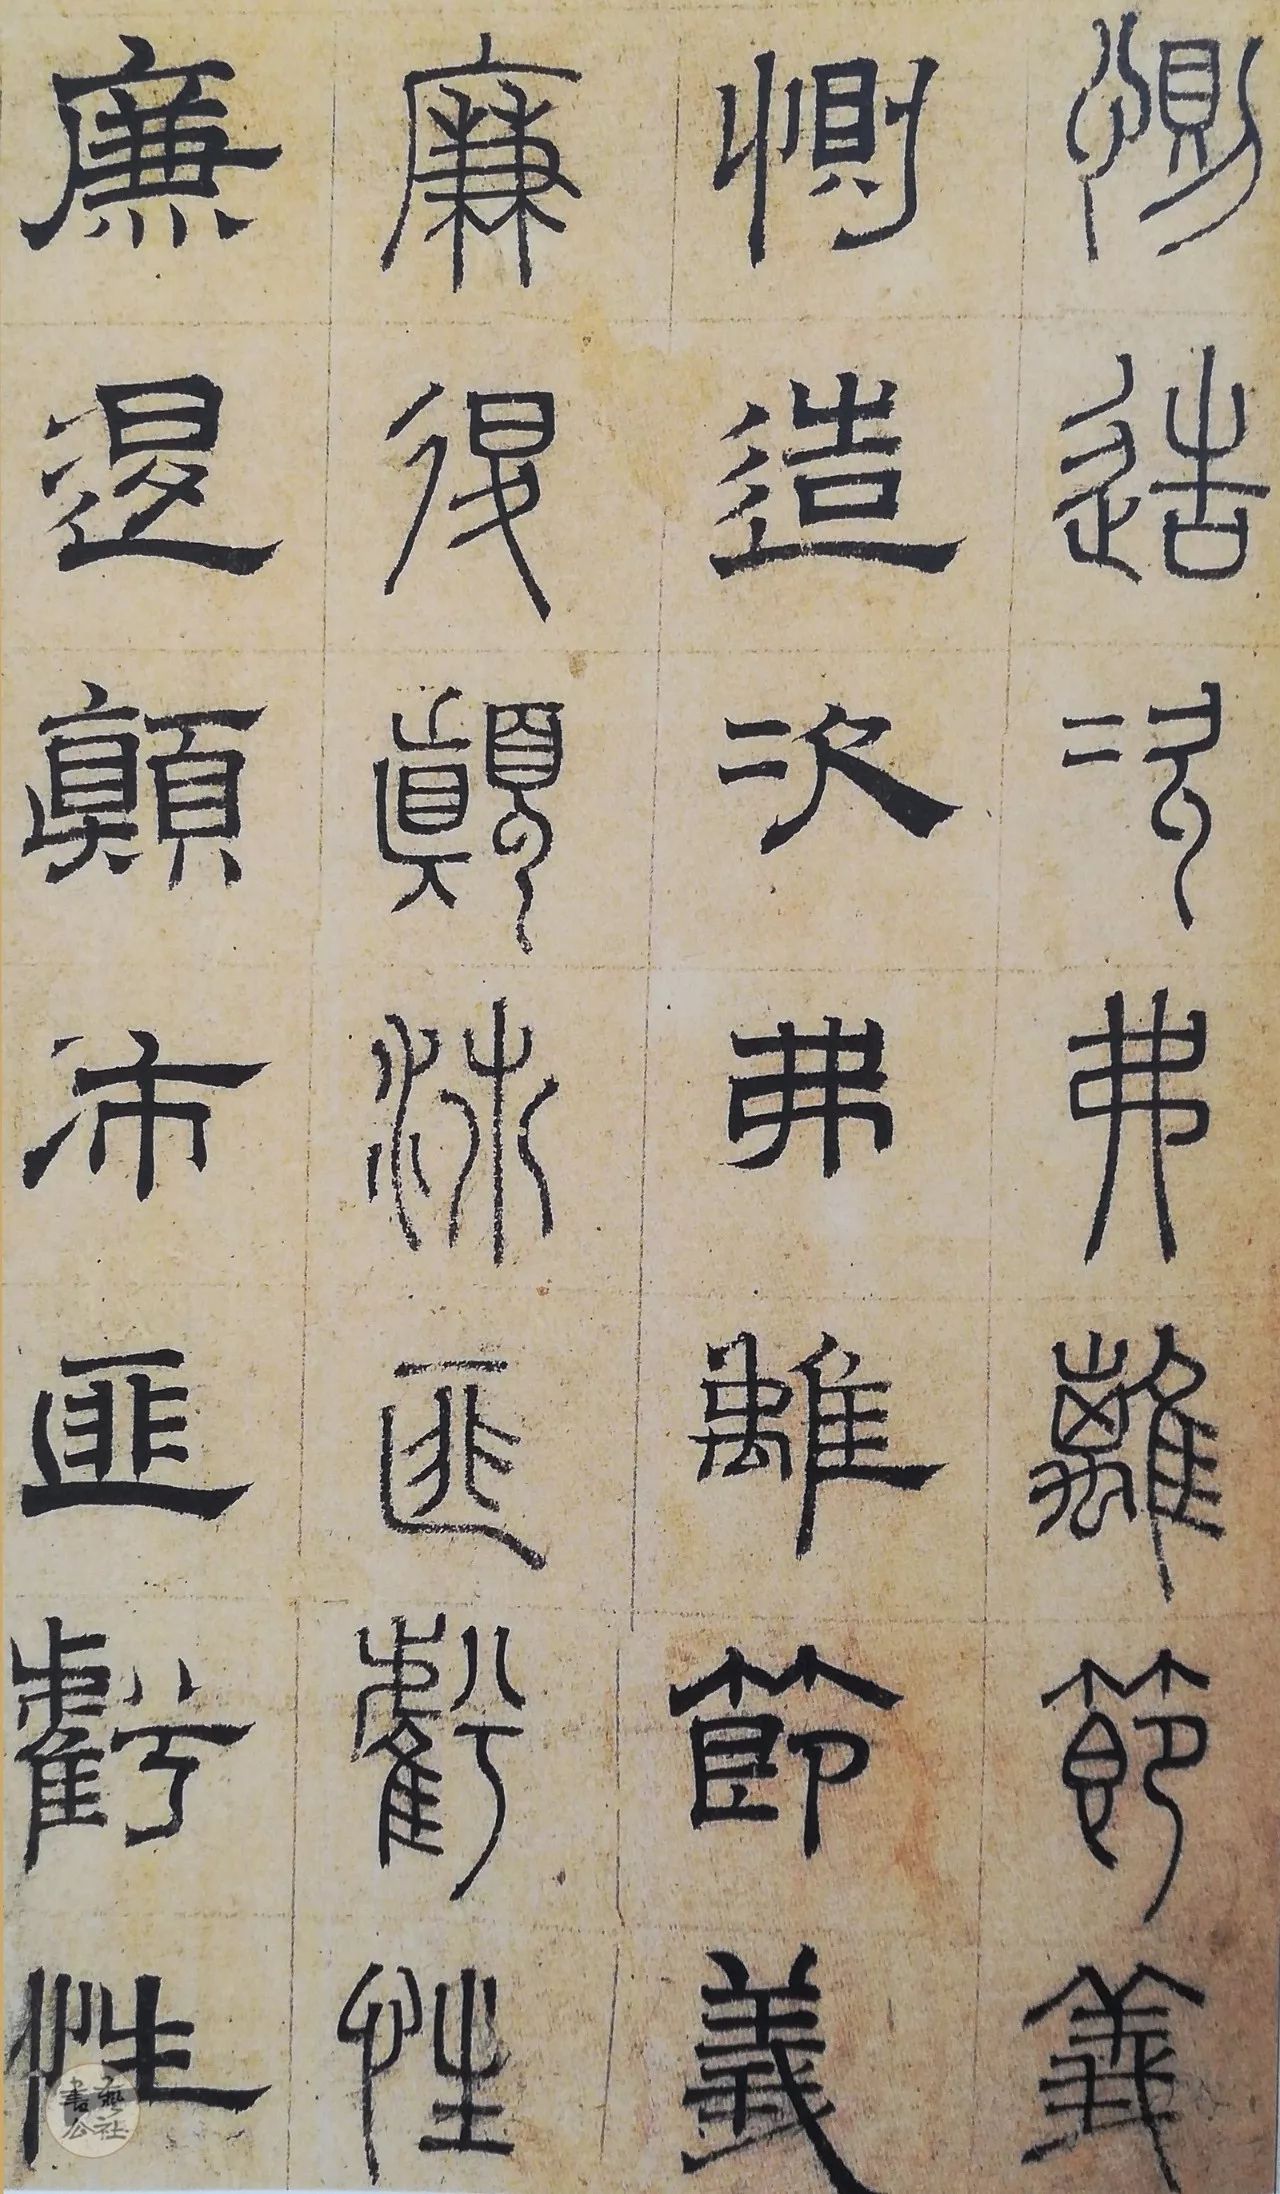 惻造次弗離節義
惻造次弗離節義
廉退顛沛匪虧性
廉退顛沛匪虧性
書藝公社